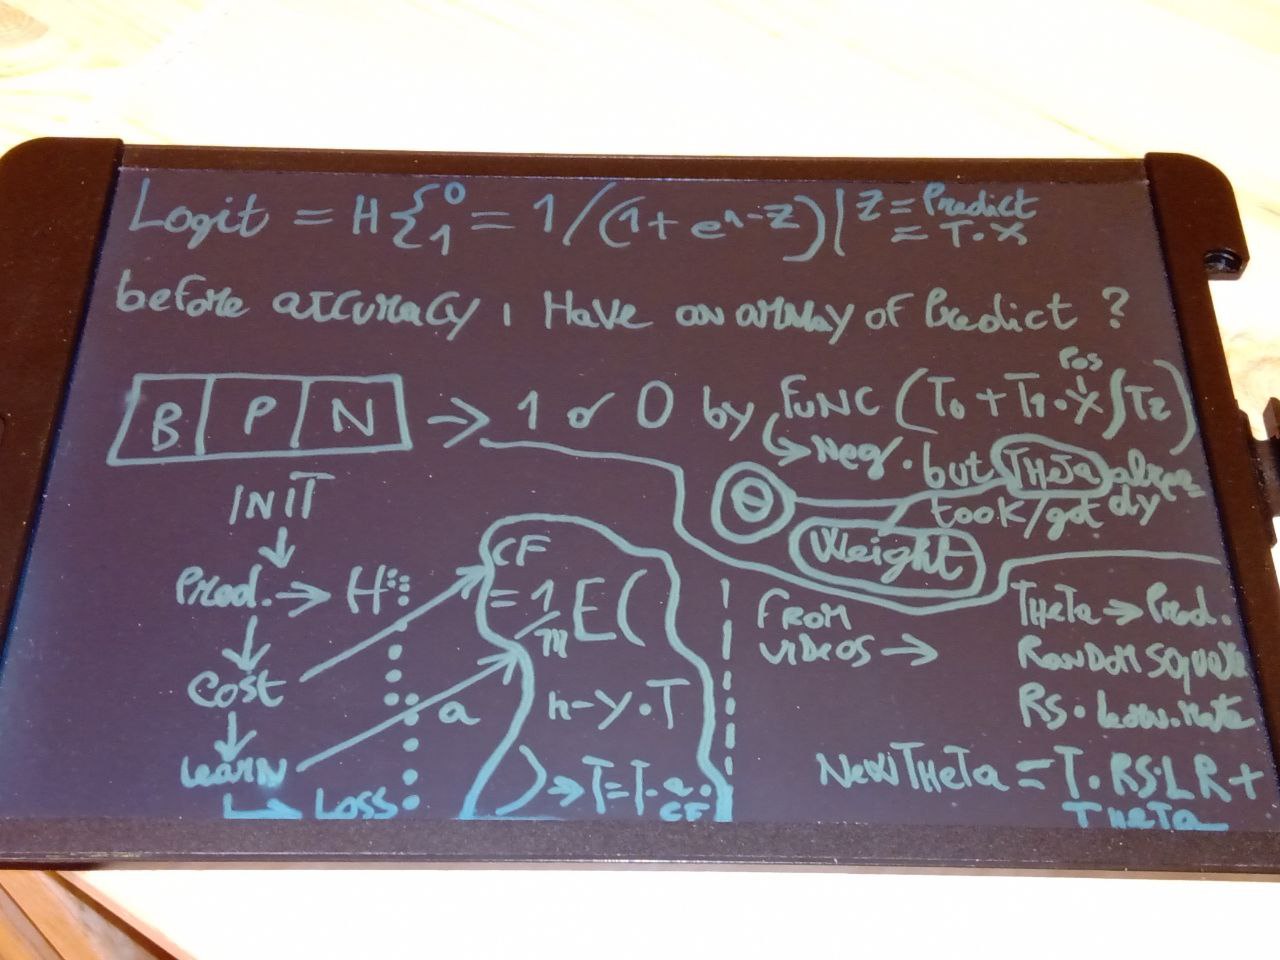 Logit = H { 0 1 = 1/(1+e^-z) | z = Predict
= T·X
before accuracy, I Have an array of Predict ?
B | P | N → 1 or 0 by FUNC (T0 + T1·X
Pos
↳ Neg. but THETA already
took/got
θ
Weight
INIT
↓
Pred. → H
↓
Cost
↓
Learn
↳ Loss
a
CF
= 1/m E(
h-y·T
) → T=T-a·
CF
FROM
VIDEOS →
THETA → Pred.
RANDOM SQUARE
RS·Learn.Rate
NewTHETA = T·RS·LR +
THETA